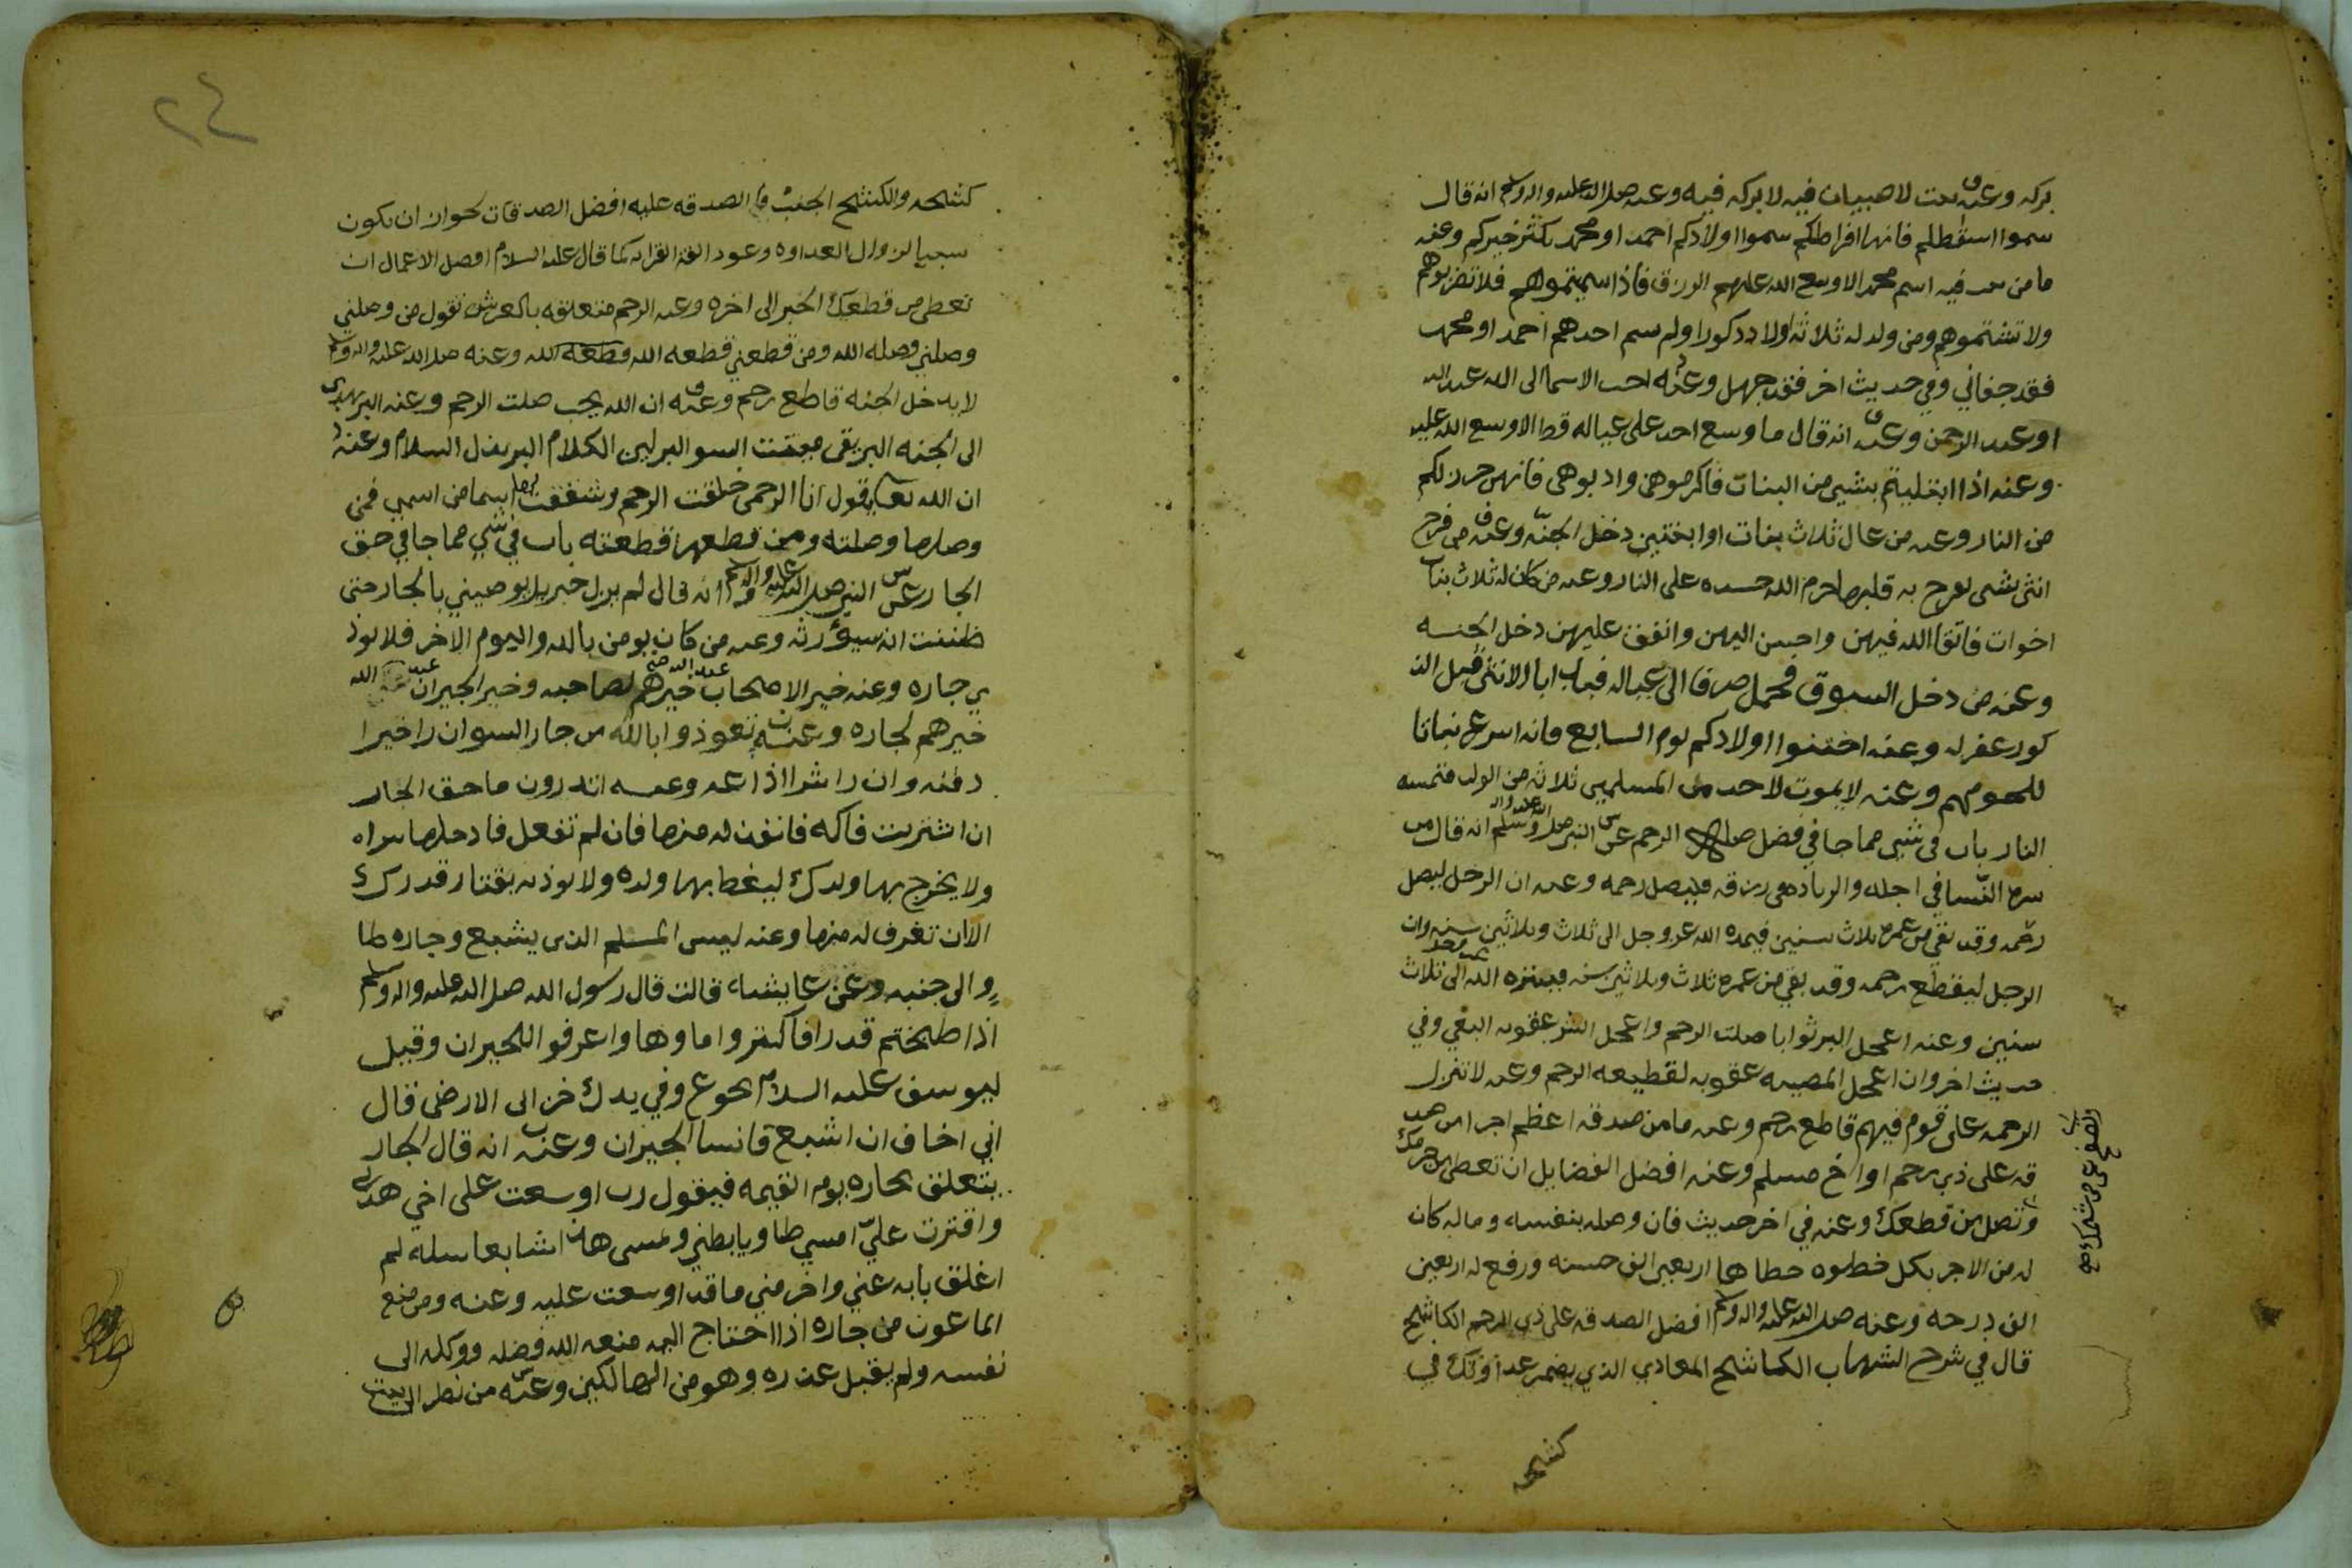 بركه وعنه بيت لا صبيان فيه لا بركه فيه وعنه صلى الله عليه واله وسلم انه قال
سموا اسقطلم فانها افراطكم سموا اولادكم احمد او محمد يكثر خيركم وعنه
ما من بيت فيه اسم محمد الا وسع الله عليهم الرزق فاذا سميتموهم فلا تضربوهم
ولا تشتموهم ومن ولد له ثلاثه اولاد ذكورا ولم يسم احدهم احمد او محمد
فقد جفاني وفي حديث اخر فقد جهل وعنه احب الاسما الى الله عبد الله
او عبد الرحمن وعنه انه قال ما وسع احد على عياله قط الا وسع الله عليه
وعنه اذا ابتليتم بشي من البنات فاكرموهن وادبوهن فانهن حرز لكم
من النار وعنه من عال ثلاث بنات او ابنتين دخل الجنه وعنه من فرح
انثى بشي يفرح به قلبها حرم الله جسده على النار وعنه من كان له ثلاث بنات
اخوات فاتقا الله فيهن واحسن اليهن وانفق عليهن دخل الجنه
وعنه من دخل السوق فحمل صرفا الى عياله فبدا بالانثى قبل الذ
كور غفر له وعنه اختنوا اولادكم يوم السابع فانه اسرع نباتا
للحومهم وعنه لا يموت لاحد من المسلمين ثلاثه من الولد فتمسه
النار باب في شي مما جا في فضل صله الرحم عن النبي صلى الله عليه واله وسلم انه قال من
سره النسا في اجله والزياده في رزقه فليصل رحمه وعنه ان الرجل ليصل
رحمه وقد بقي من عمره ثلاث سنين فيمده الله عز وجل الى ثلاث وثلاثين سنه وان
الرجل ليقطع رحمه وقد بقي من عمره ثلاث وثلاثين سنه فيبتره الله الى ثلاث
سنين وعنه اعجل البر ثوابا صلت الرحم واعجل الشر عقوبه البغي وفي
حديث اخر وان اعجل المصيبه عقوبه لقطيعه الرحم وعنه لا تنزل
الرحمه على قوم فيهم قاطع رحم وعنه ما من صدقه اعظم اجرا من صد
قه على ذي رحم او اخ مسلم وعنه افضل الفضايل ان تعطي من حرمك
وتصل من قطعك وعنه في اخر حديث فان وصله بنفسه وماله كان
له من الاجر بكل خطوه خطاها اربعين الف حسنه ورفع له اربعين
الف درجه وعنه صلى الله عليه واله وسلم افضل الصدقه على ذي الرحم الكاشح
قال في شرح الشهاب الكاشح المعادي الذي يضمر عداوتك في
كشحه
٢٤
كشحه والكشح الجنب فا الصدقه عليه افضل الصدقات لجواز ان يكون
سببا لزوال العداوه وعود الفه القرابه كما قال عليه السلام افضل الاعمال ان
تعطي من قطعك الخبر الى اخره وعنه الرحم متعلقه بالعرش تقول من وصلني
وصلني وصله الله ومن قطعني قطعه الله قطعه الله وعنه صلى الله عليه واله وسلم
لا يدخل الجنه قاطع رحم وعنه ان الله يحب صلت الرحم وعنه البر يهدي
الى الجنه البر يقي ميتت السو البر لين الكلام البر بذل السلام وعنه
ان الله تعالى يقول انا الرحمن خلقت الرحم وشققت لها اسما من اسمي فمن
وصلها وصلته ومن قطعها قطعته باب في شي مما جا في حق
الجار عن النبي صلى الله عليه واله وسلم انه قال لم يزل جبريل يوصيني بالجار حتى
ظننت انه سيؤرثه وعنه من كان يومن بالله واليوم الاخر فلا يوذ
ي جاره وعنه خير الاصحاب عند الله خيرهم لصاحبه وخير الجيران عند الله
خيرهم لجاره وعنه تعوذوا بالله من جار السو ان راء خيرا
دفنه وان راء شرا اذاعه وعنه اتدرون ما حق الجار
ان اشتريت فاكه فانفذ له منها فان لم تفعل فادخلها سراه
ولا يخرج بها ولدك ليغظ بها ولده ولا توذيه بقتار قدرك
الا ان تغرف له منها وعنه ليس المسلم الذي يشبع وجاره طا
وٍ الى جنبه وعن عايشه قالت قال رسول الله صلى الله عليه واله وسلم
اذا طبختم قدرا فاكثروا ماوها واغرفوا للجيران وقيل
ليوسف عليه السلام تجوع وفي يدك خزاين الارض قال
اني اخاف ان اشبع فانسا الجيران وعنه انه قال الجار
يتعلق بجاره يوم القيمه فيقول رب اوسعت على اخي هذا
واقترت علي امسي طاويا بطني ويمسي هذا شابعا سله لم
اغلق بابه عني واخر مني ما قد اوسعت عليه وعنه ومن منع
الماعون من جاره اذا احتاج اليه منعه الله فضله ووكله الى
نفسه ولم يقبل عذره وهو من الهالكين وعنه من نظر الى بيت